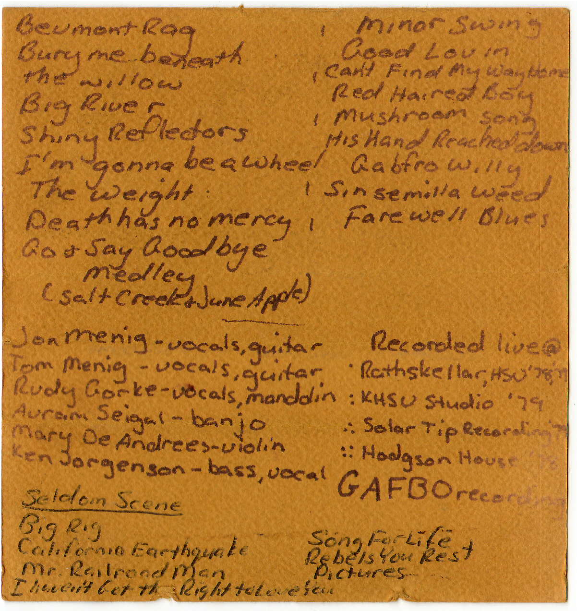 Beumont Rag
Bury me beneath
the willow
Big River
Shiny Reflectors
I'm gonna be a wheel
The Weight
Death has no mercy
Go & Say Goodbye
Medley
(Salt Creek & June Apple)
Minor Swing
Good Lovin
Can't Find My Way Home
Red Haired Boy
Mushroom song
His Hand Reached down
Gabfro Willy
Sinsemilla Weed
Farewell Blues
Jon Menig - vocals, guitar
Tom Menig - vocals, guitar
Rudy Gorke - vocals, mandolin
Avraim Seigal - banjo
Mary De Andrees - violin
Ken Jorgenson - bass, vocal
Recorded live @
· Rathskellar, HSU '78,
: KHSU Studio '79
∴ Solar Tip Recording
:: Hodgson House '78
GAFBO recording
Seldom Scene
Big Rig
California Earthquake
Mr. Railroad Man
I haven't Got the Right to Love You
Song For Life
Rebels You Rest
Pictures